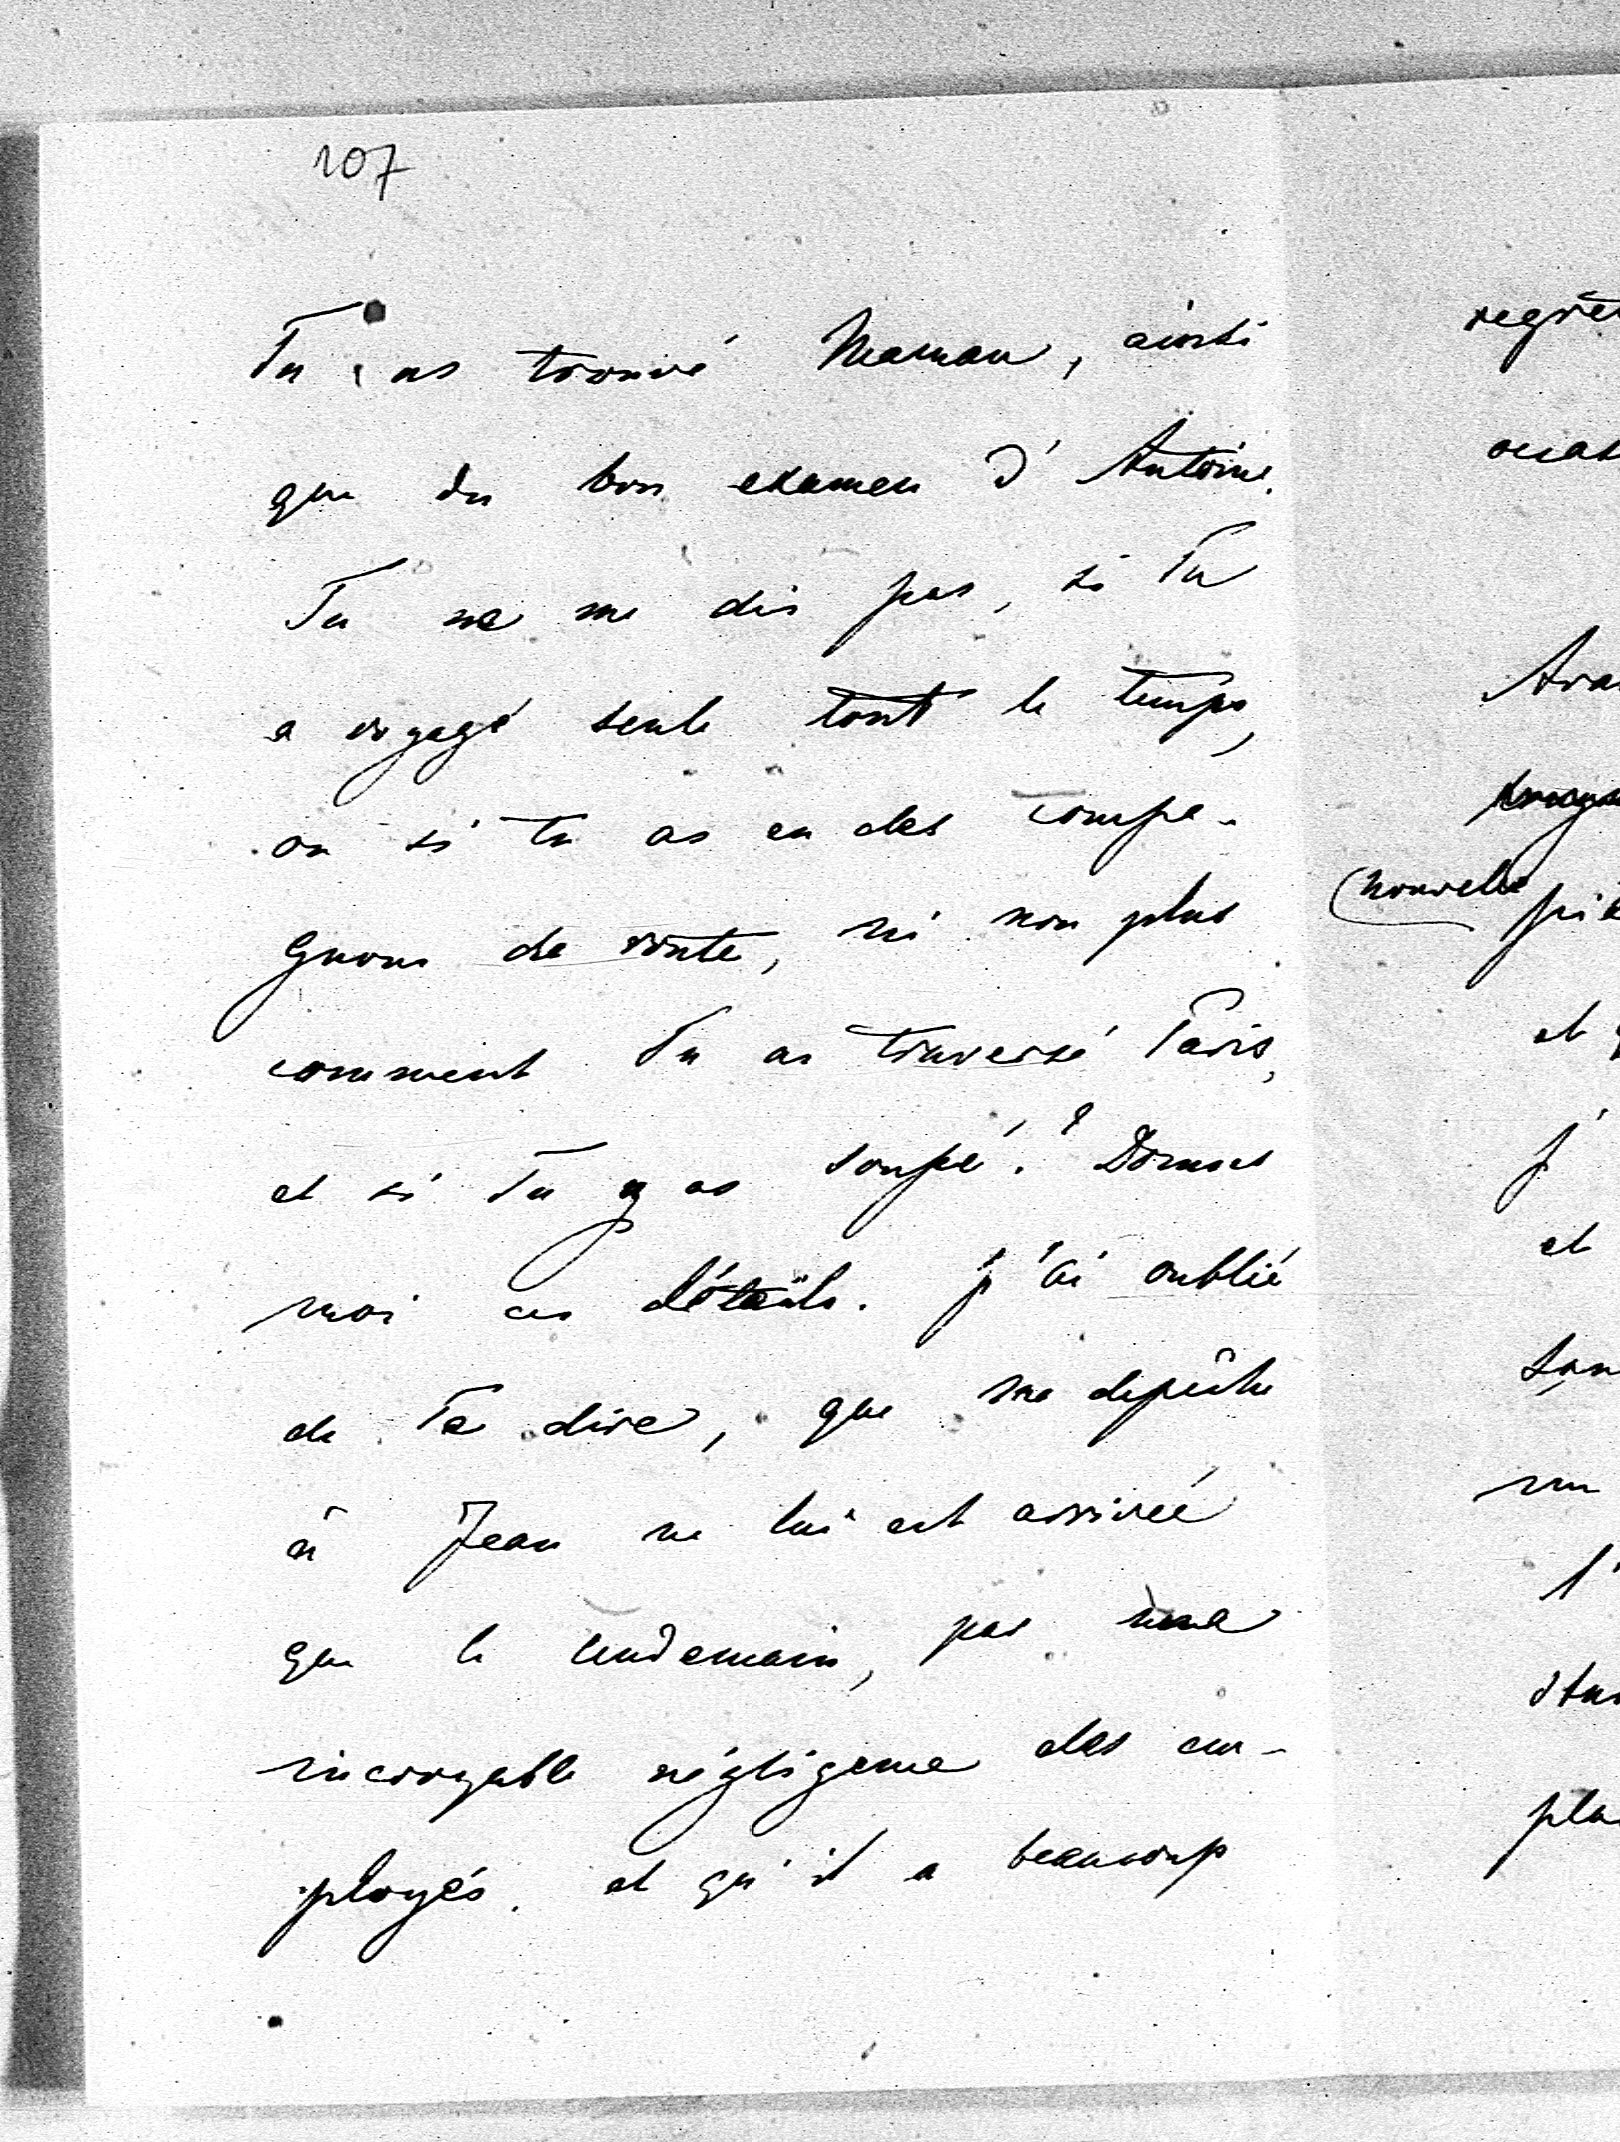 107
Tu as trouvé Maman, ainsi
que du bon examen d'Antoine.
Tu ne me dis pas, si Tu
a voyagé seule tout le temps,
ou si tu as eu des compa-
gnons de route, ni non plus
comment Tu as traversé Paris,
et si Tu y as soupé? Donnes
moi ces détails. j'ai oublié
de Te dire, que ma depêche
à Jean ne lui est arrivée
que le lendemain, par une
incroyable négligence des em-
ployés. et qu'il a beaucoup
regret
Ara
(nouvelle
et
j'
et
l'